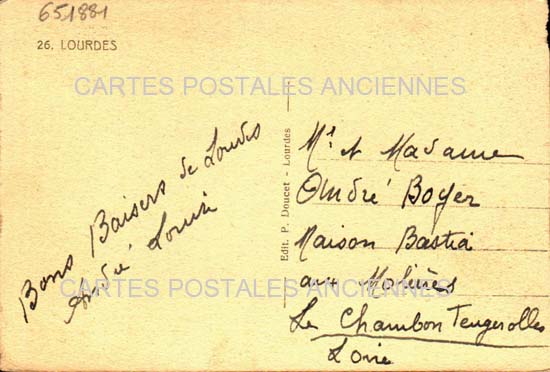 651881
26. LOURDES
CARTES POSTALES ANCIENNES
Bons Baisers de Lourdes
André Louise
Edit. P. Doucet - Lourdes
Mr et Madame
André Boyer
Maison Bastia
aux Molières
Le Chambon Feugerolles
Loire
CARTES POSTALES ANCIENNES